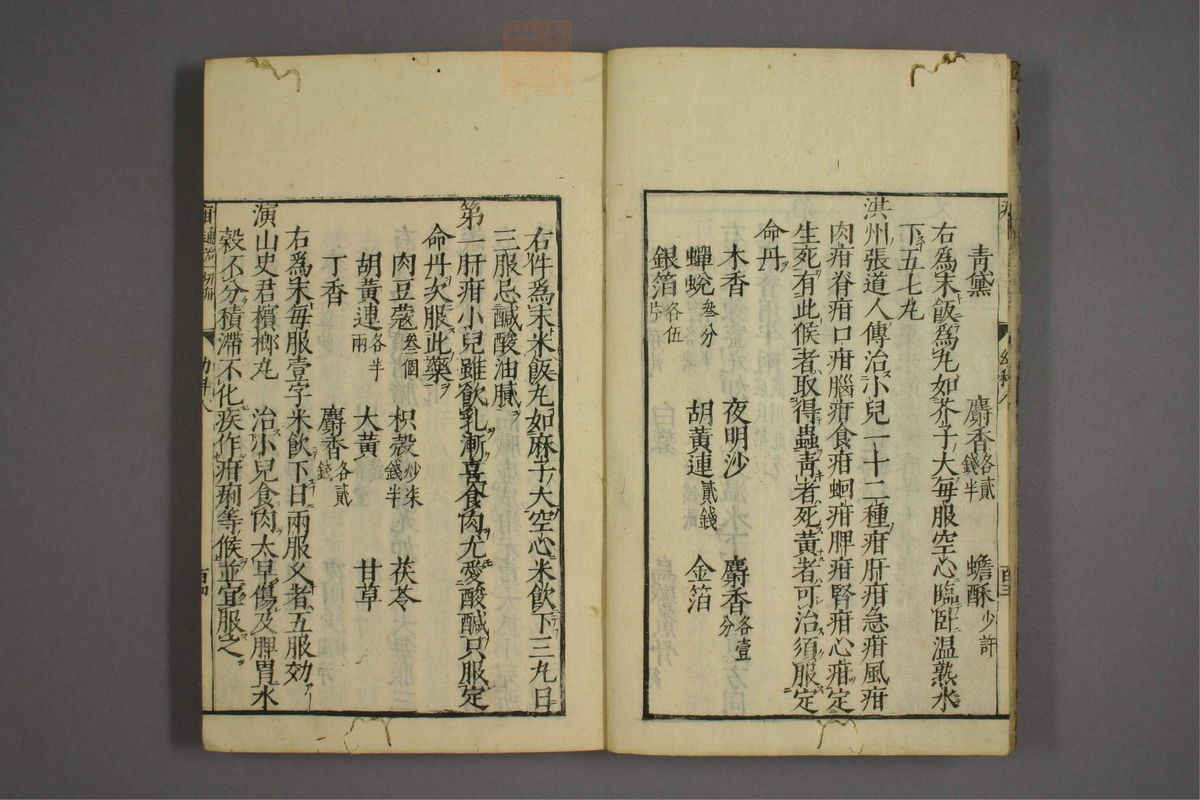 青黛 麝香各貳錢半 蟾酥少許
右爲末飯爲丸如芥子大每服空心臨卧温熟水
下五七丸
洪州張道人傳治小兒一十二種疳肝疳急疳風疳
肉疳脊疳口疳腦疳食疳蛔疳脾疳腎疳心疳定
生死有此候者取得蟲靑者死黄者可治須服定
命丹
木香 夜明沙 麝香各壹分
蟬蛻叁分 胡黄連貳錢 金箔
銀箔各伍片
右件爲末米飯丸如麻子大空心米飲下三丸日
三服忌鹹酸油膩
第一肝疳小兒雖飲乳漸喜食肉尤愛酸鹹只服定
命丹次服此藥
肉豆蔻叁個 枳殼炒柒錢半 茯苓
胡黄連各半兩 大黄 甘草
丁香 麝香各貳錢
右爲末每服壹字米飲下日兩服乂者五服効
演山史君檳榔丸 治小兒食肉太早傷及脾胃水
穀不分積滯不化疾作疳痢等候並宜服之